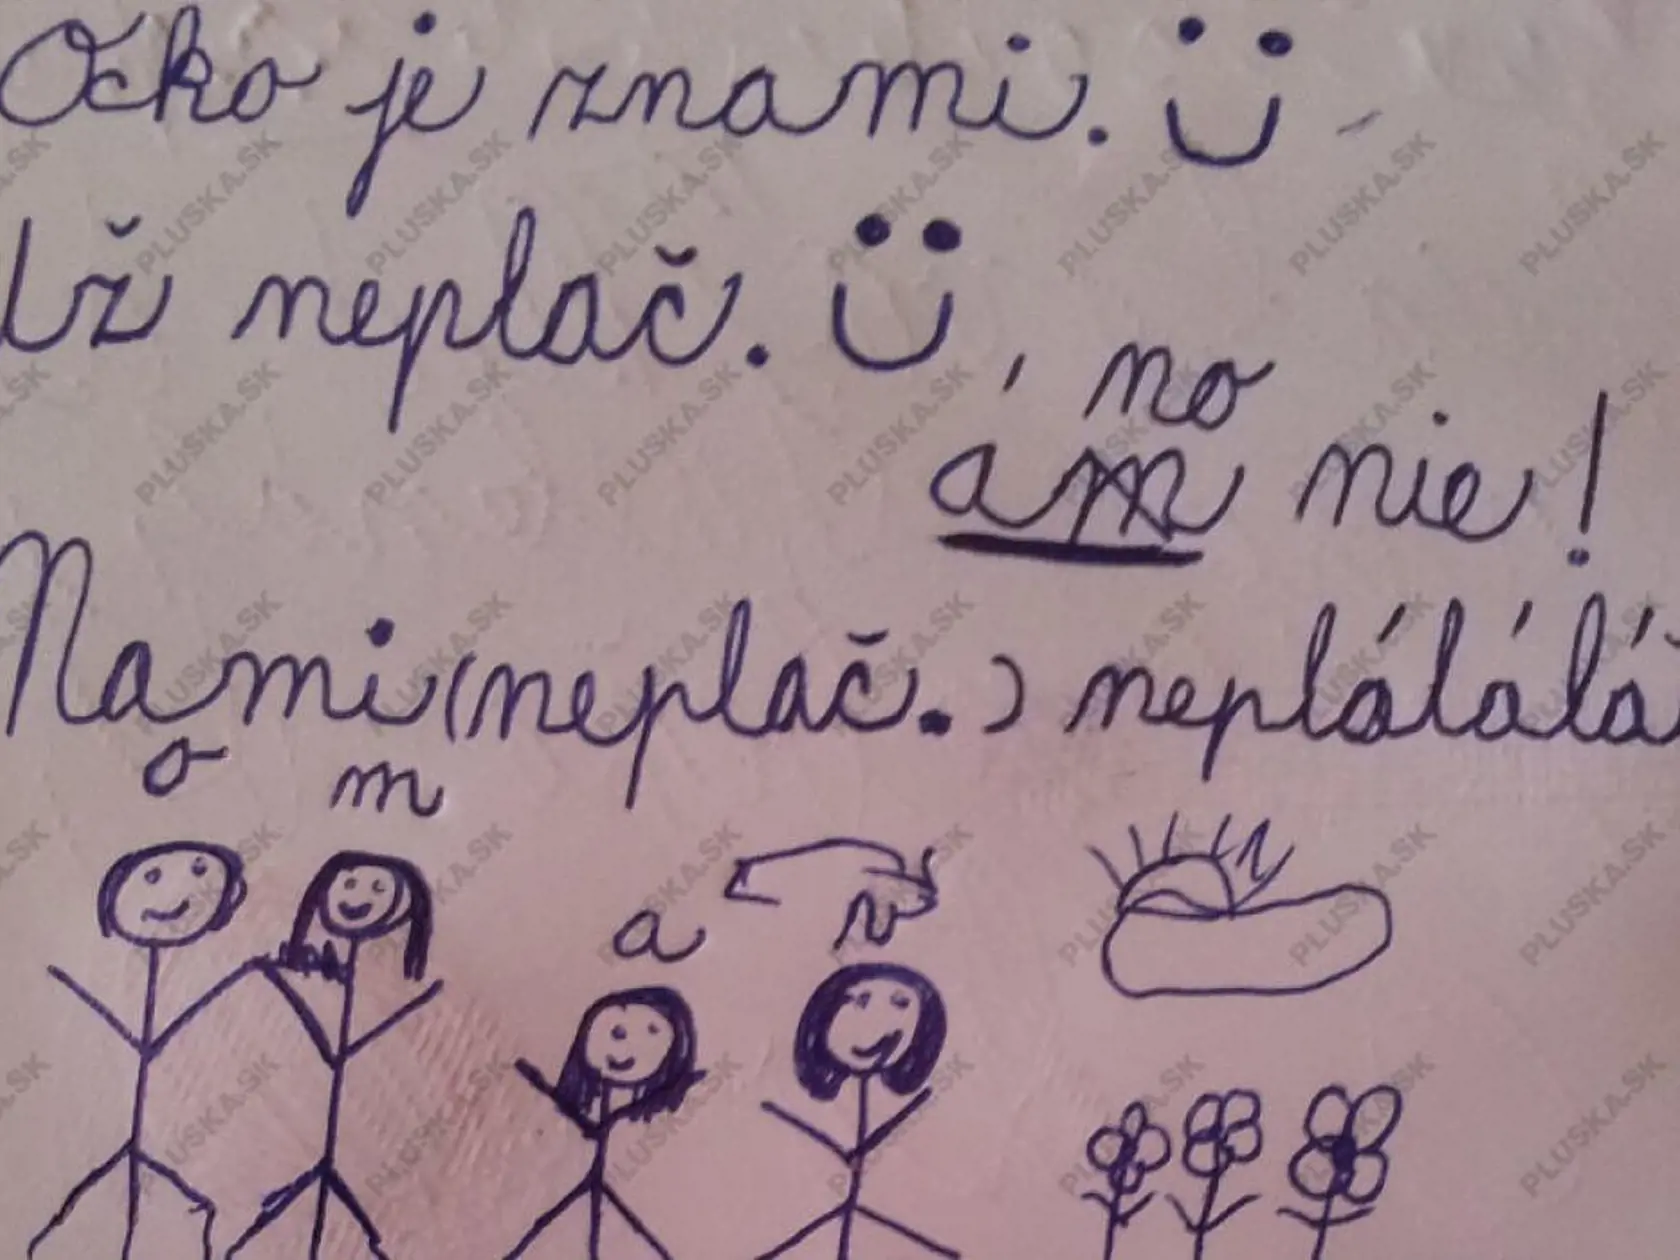 Ocko je znami.
Už neplač.
, no
am nie!
Nami (neplač.) neplálálá
o m
a v
PLUSKA.SK